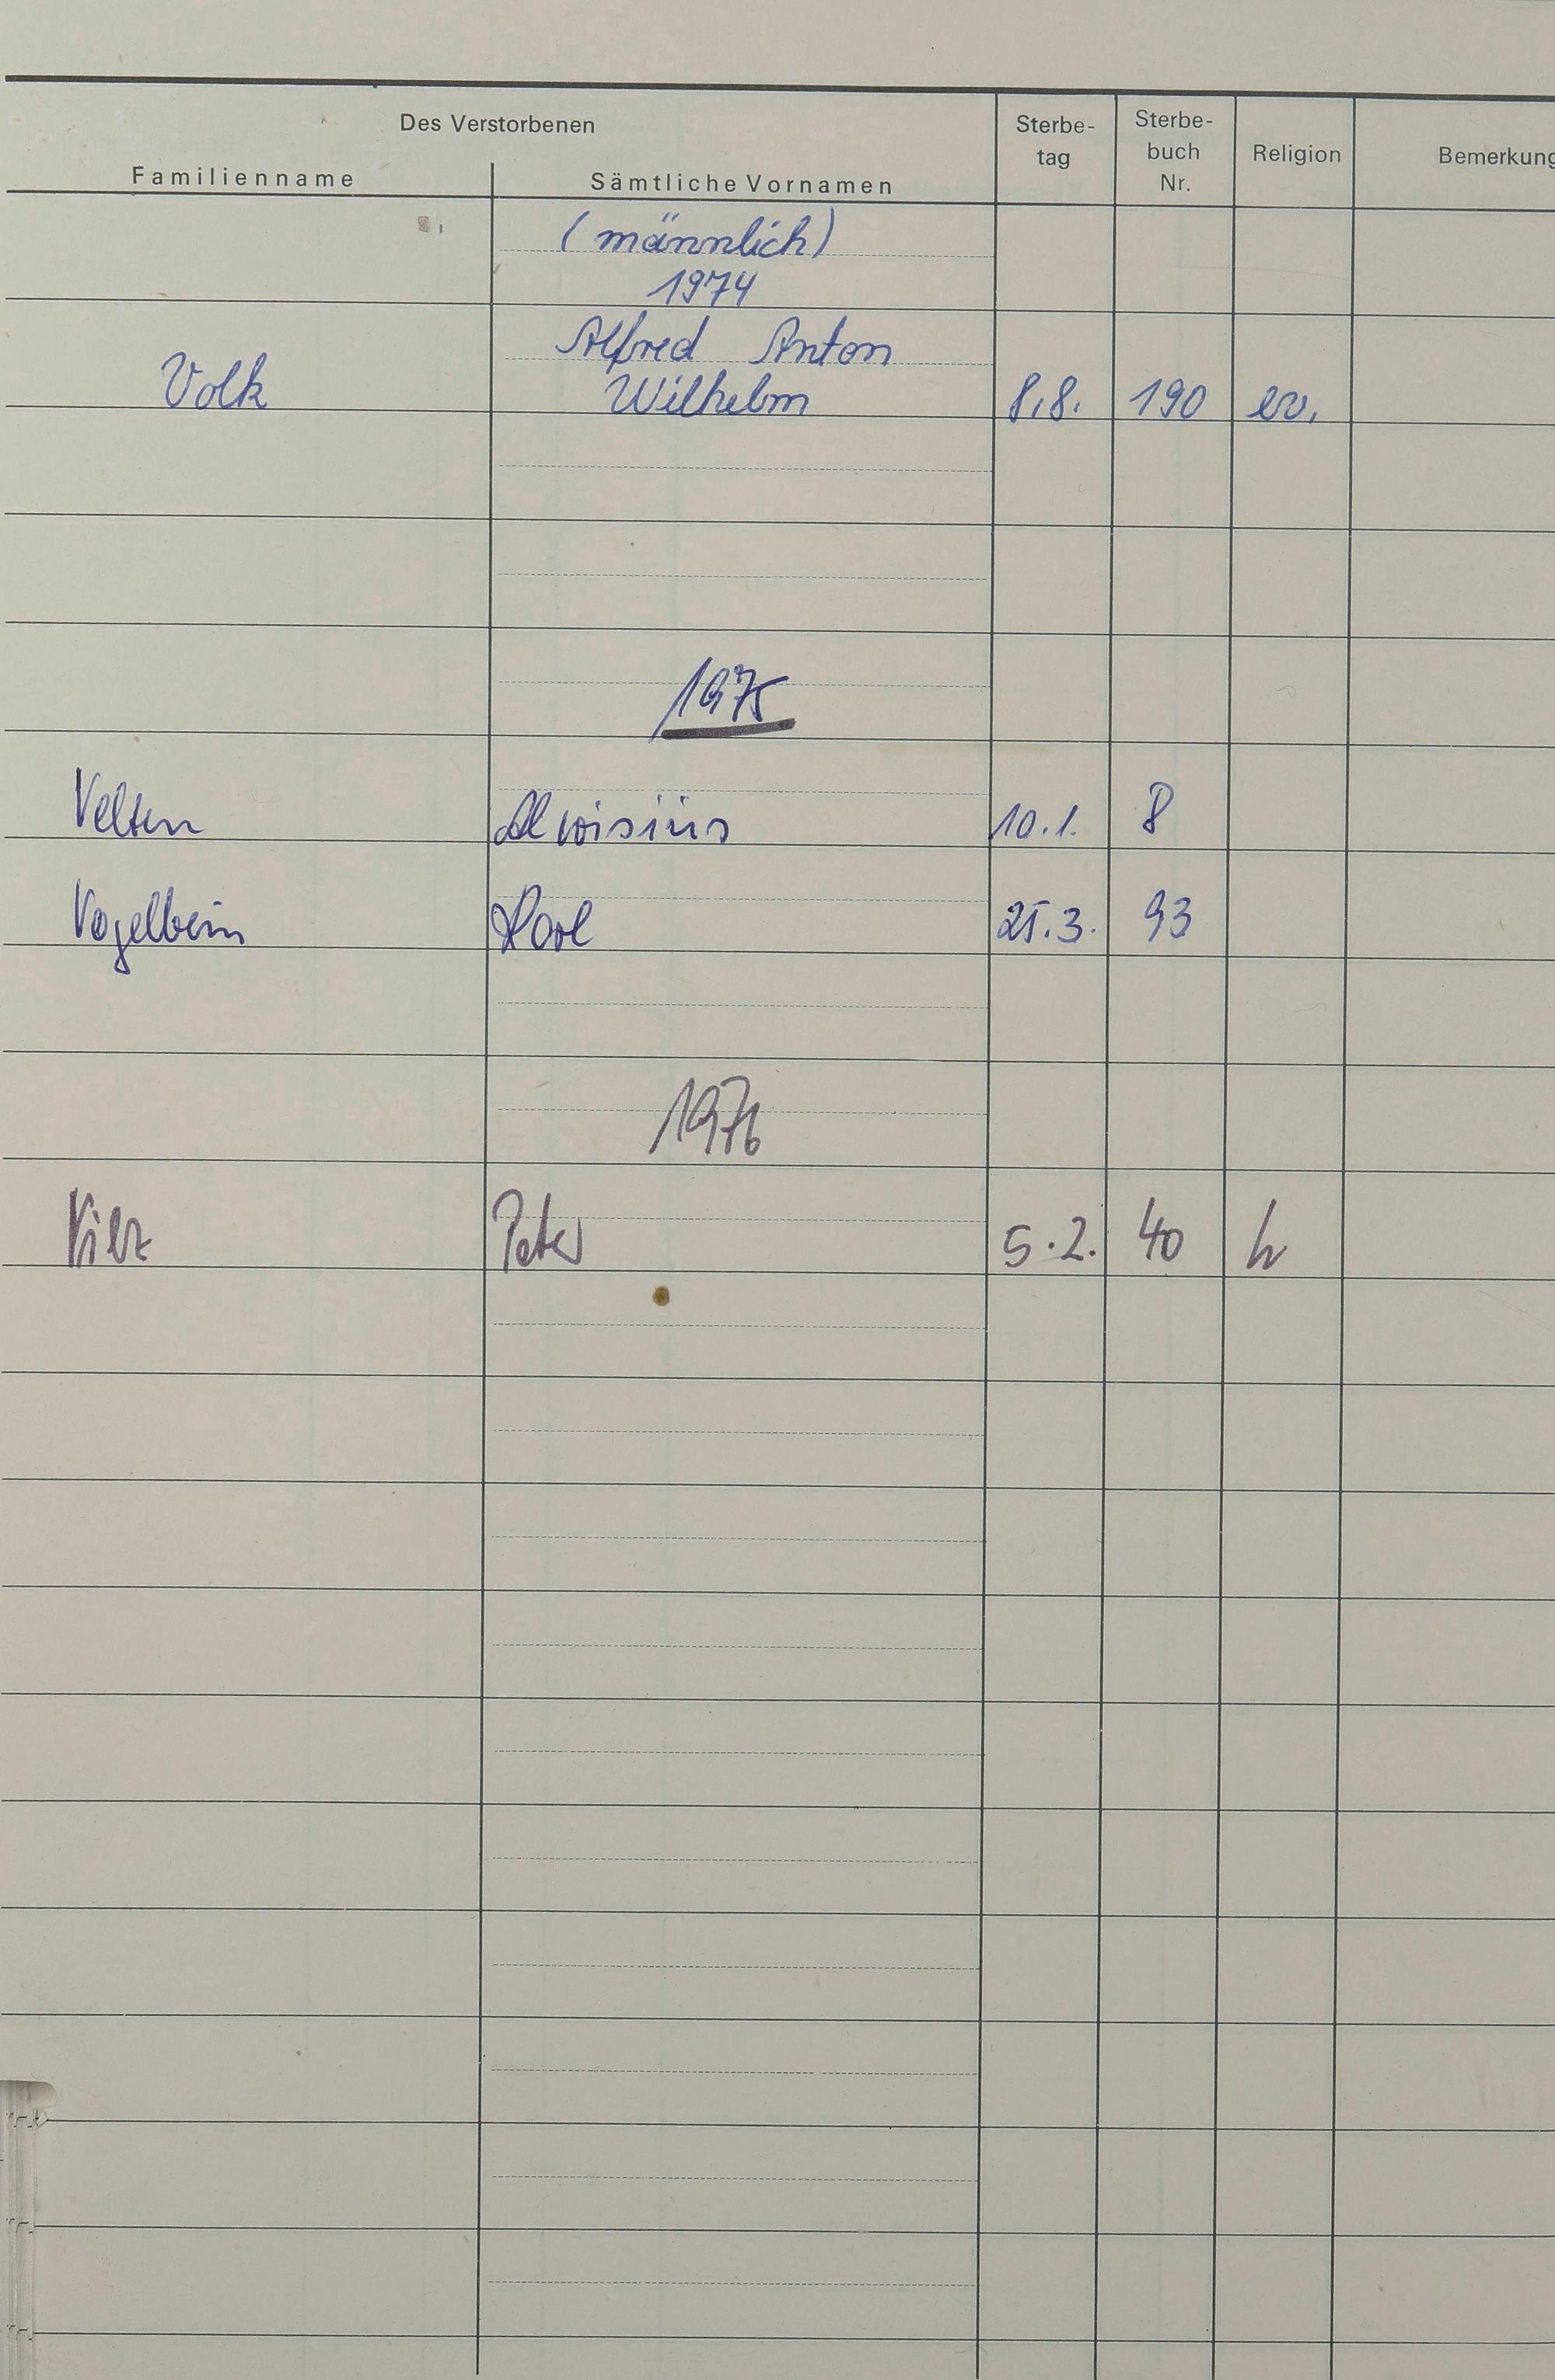 Des Verstorbenen
Familienname Sämtliche Vornamen Sterbe-tag Sterbe-buch Nr. Religion Bemerkung
(männlich)
1974
Alfred Anton
Volk Wilhelm 8.8. 190 ev.
1975
Velten Aloisius 10.1. 8
Vogelbein Karl 25.3. 93
1976
Vilz Peter 5.2. 40